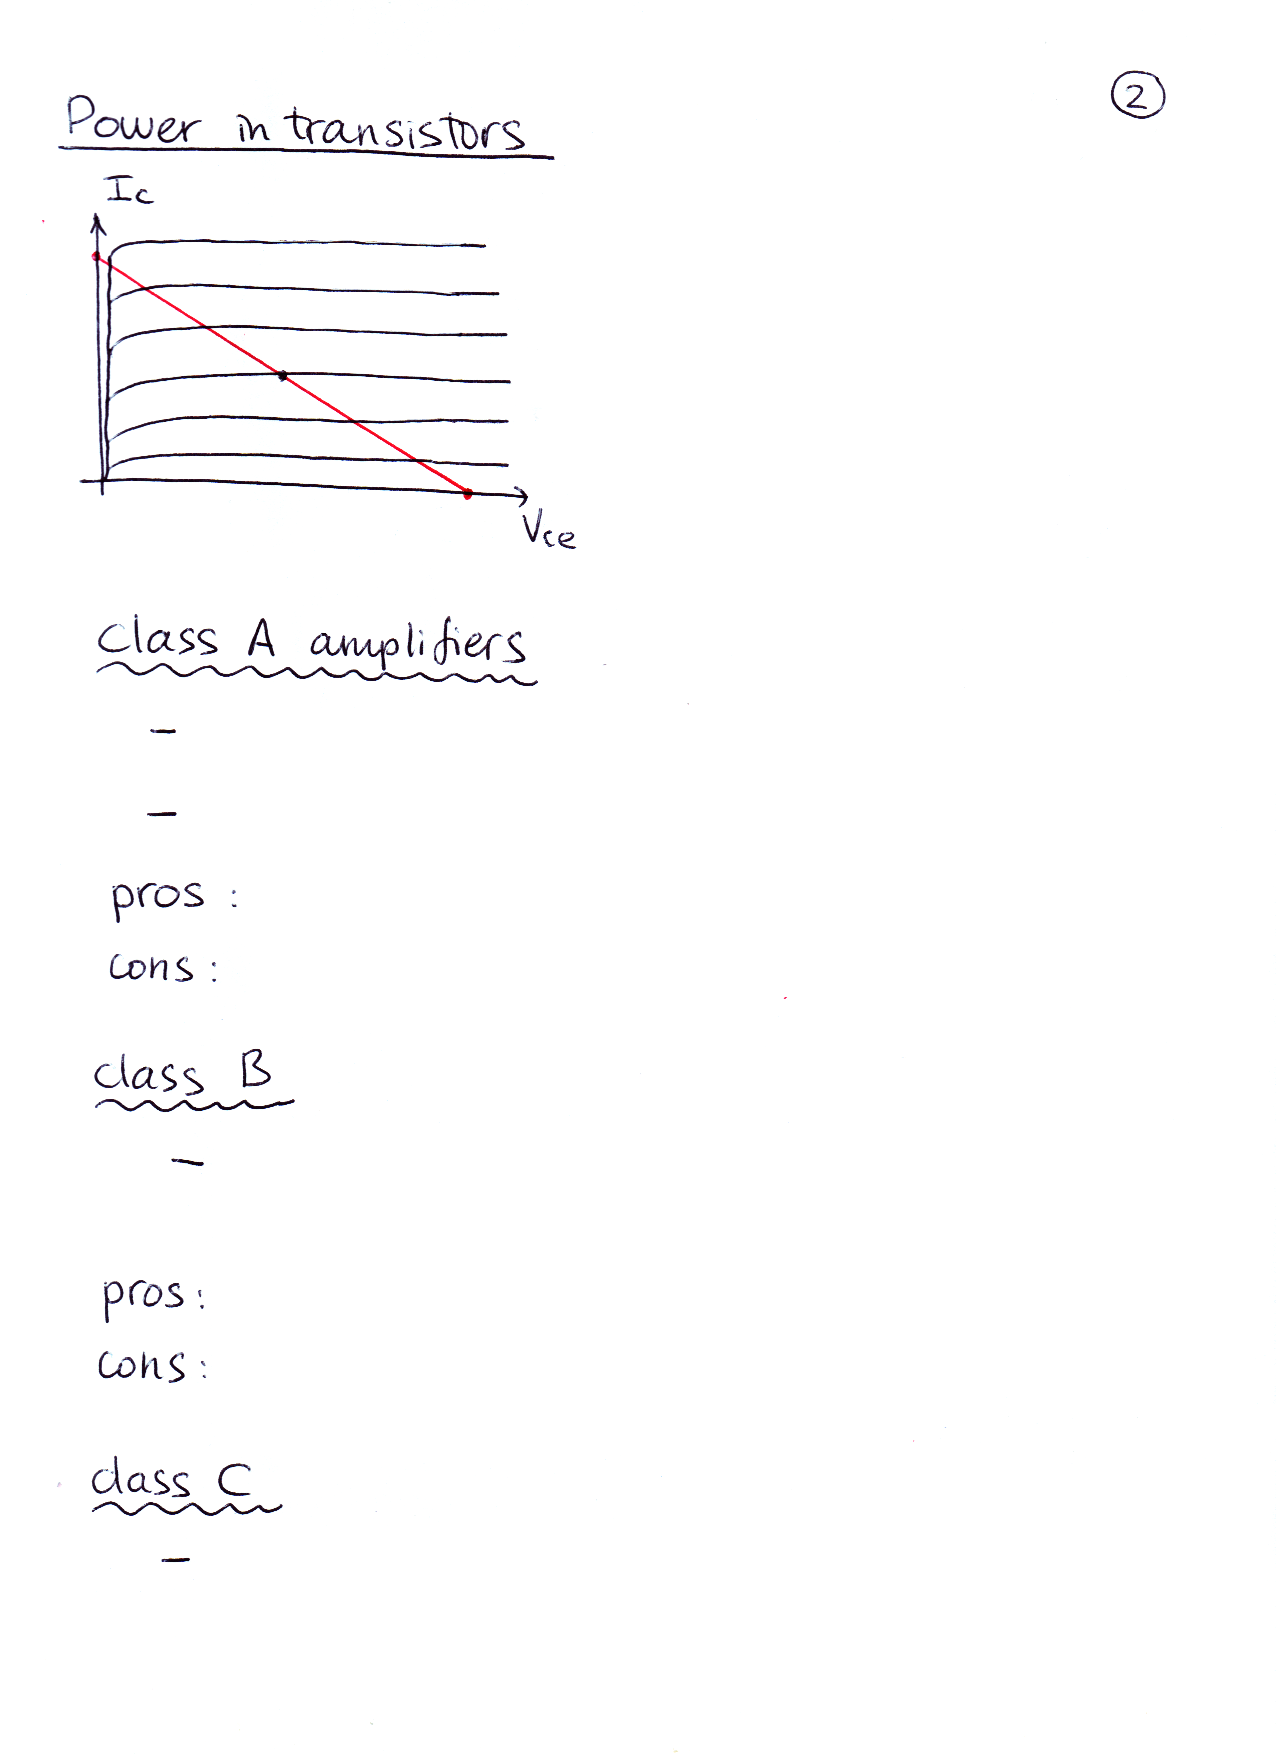 2
Power in transistors
Ic
Vce
class A amplifiers
-
-
pros :
cons :
class B
-
pros :
cons :
class C
-